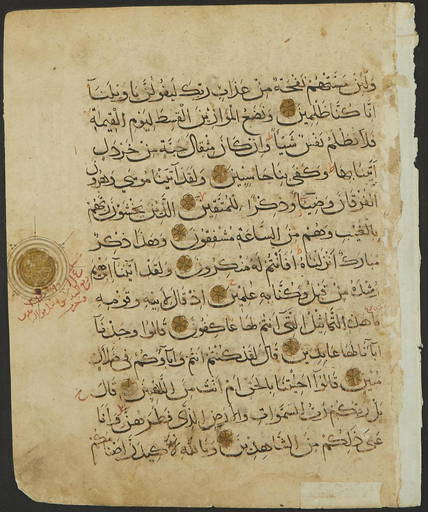 ولئن مستهم نفحة من عذاب ربك ليقولن يا ويلنا
انا كنا ظلمين ونضع الموازين القسط ليوم القيمة
فلا تظلم نفس شيئا وان كان مثقال حبة من خردل
اتينا بها وكفى بنا حاسبين ولقد اتينا موسى وهرون
الفرقان وضياء وذكرا للمتقين الذين يخشون ربهم
بالغيب وهم من الساعة مشفقون وهذا ذكر
مبارك انزلناه افانتم له منكرون ولقد اتينا ابرهيم
رشده من قبل وكنا به علمين اذ قال لابيه وقومه
ما هذه التماثيل التي انتم لها عاكفون قالوا وجدنا
اباءنا لها عابدين قال لقد كنتم انتم واباؤكم في ضلال
مبين قالوا اجئتنا بالحق ام انت من اللعبين قال
بل ربكم رب السموات والارض الذي فطرهن وانا
على ذلكم من الشاهدين وتالله لاكيدن اصنامكم